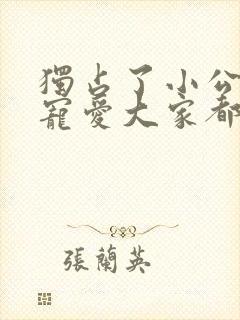 獨占了小公
寵愛大家都
張蘭英